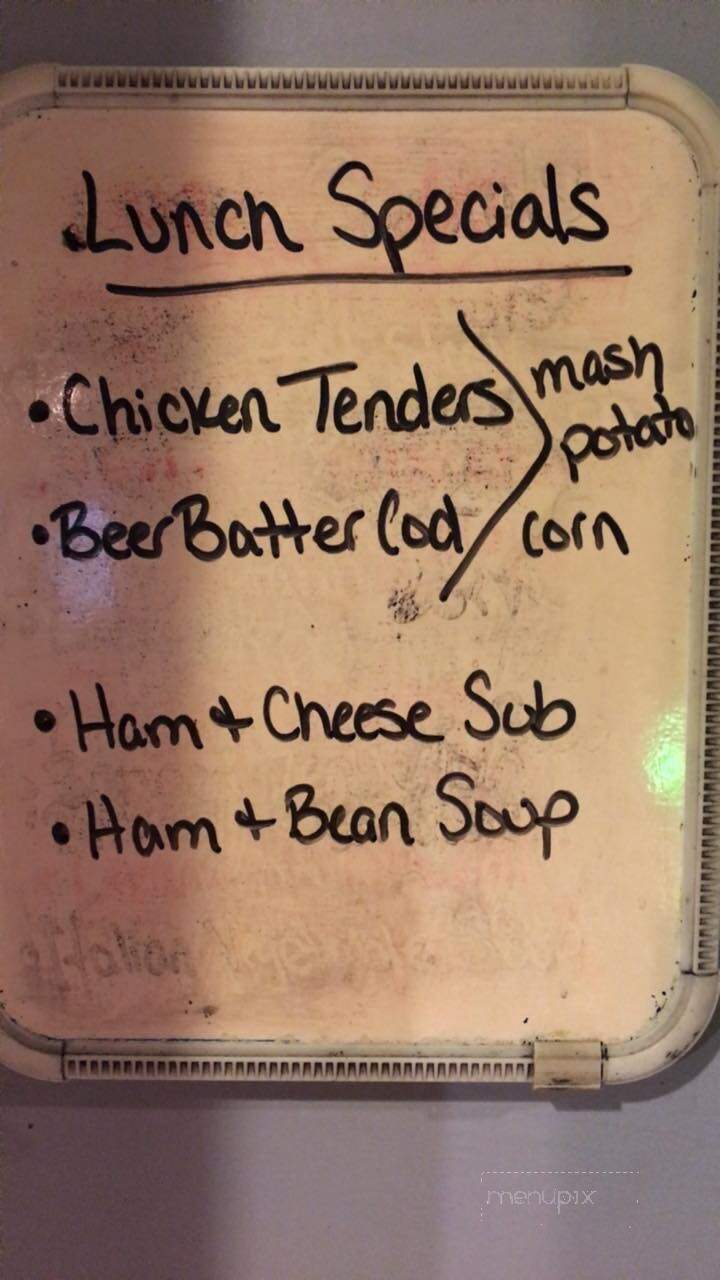 Lunch Specials
• Chicken Tenders
mash
potato
• Beer Batter Cod
corn
• Ham & Cheese Sub
• Ham & Bean Soup
menupix